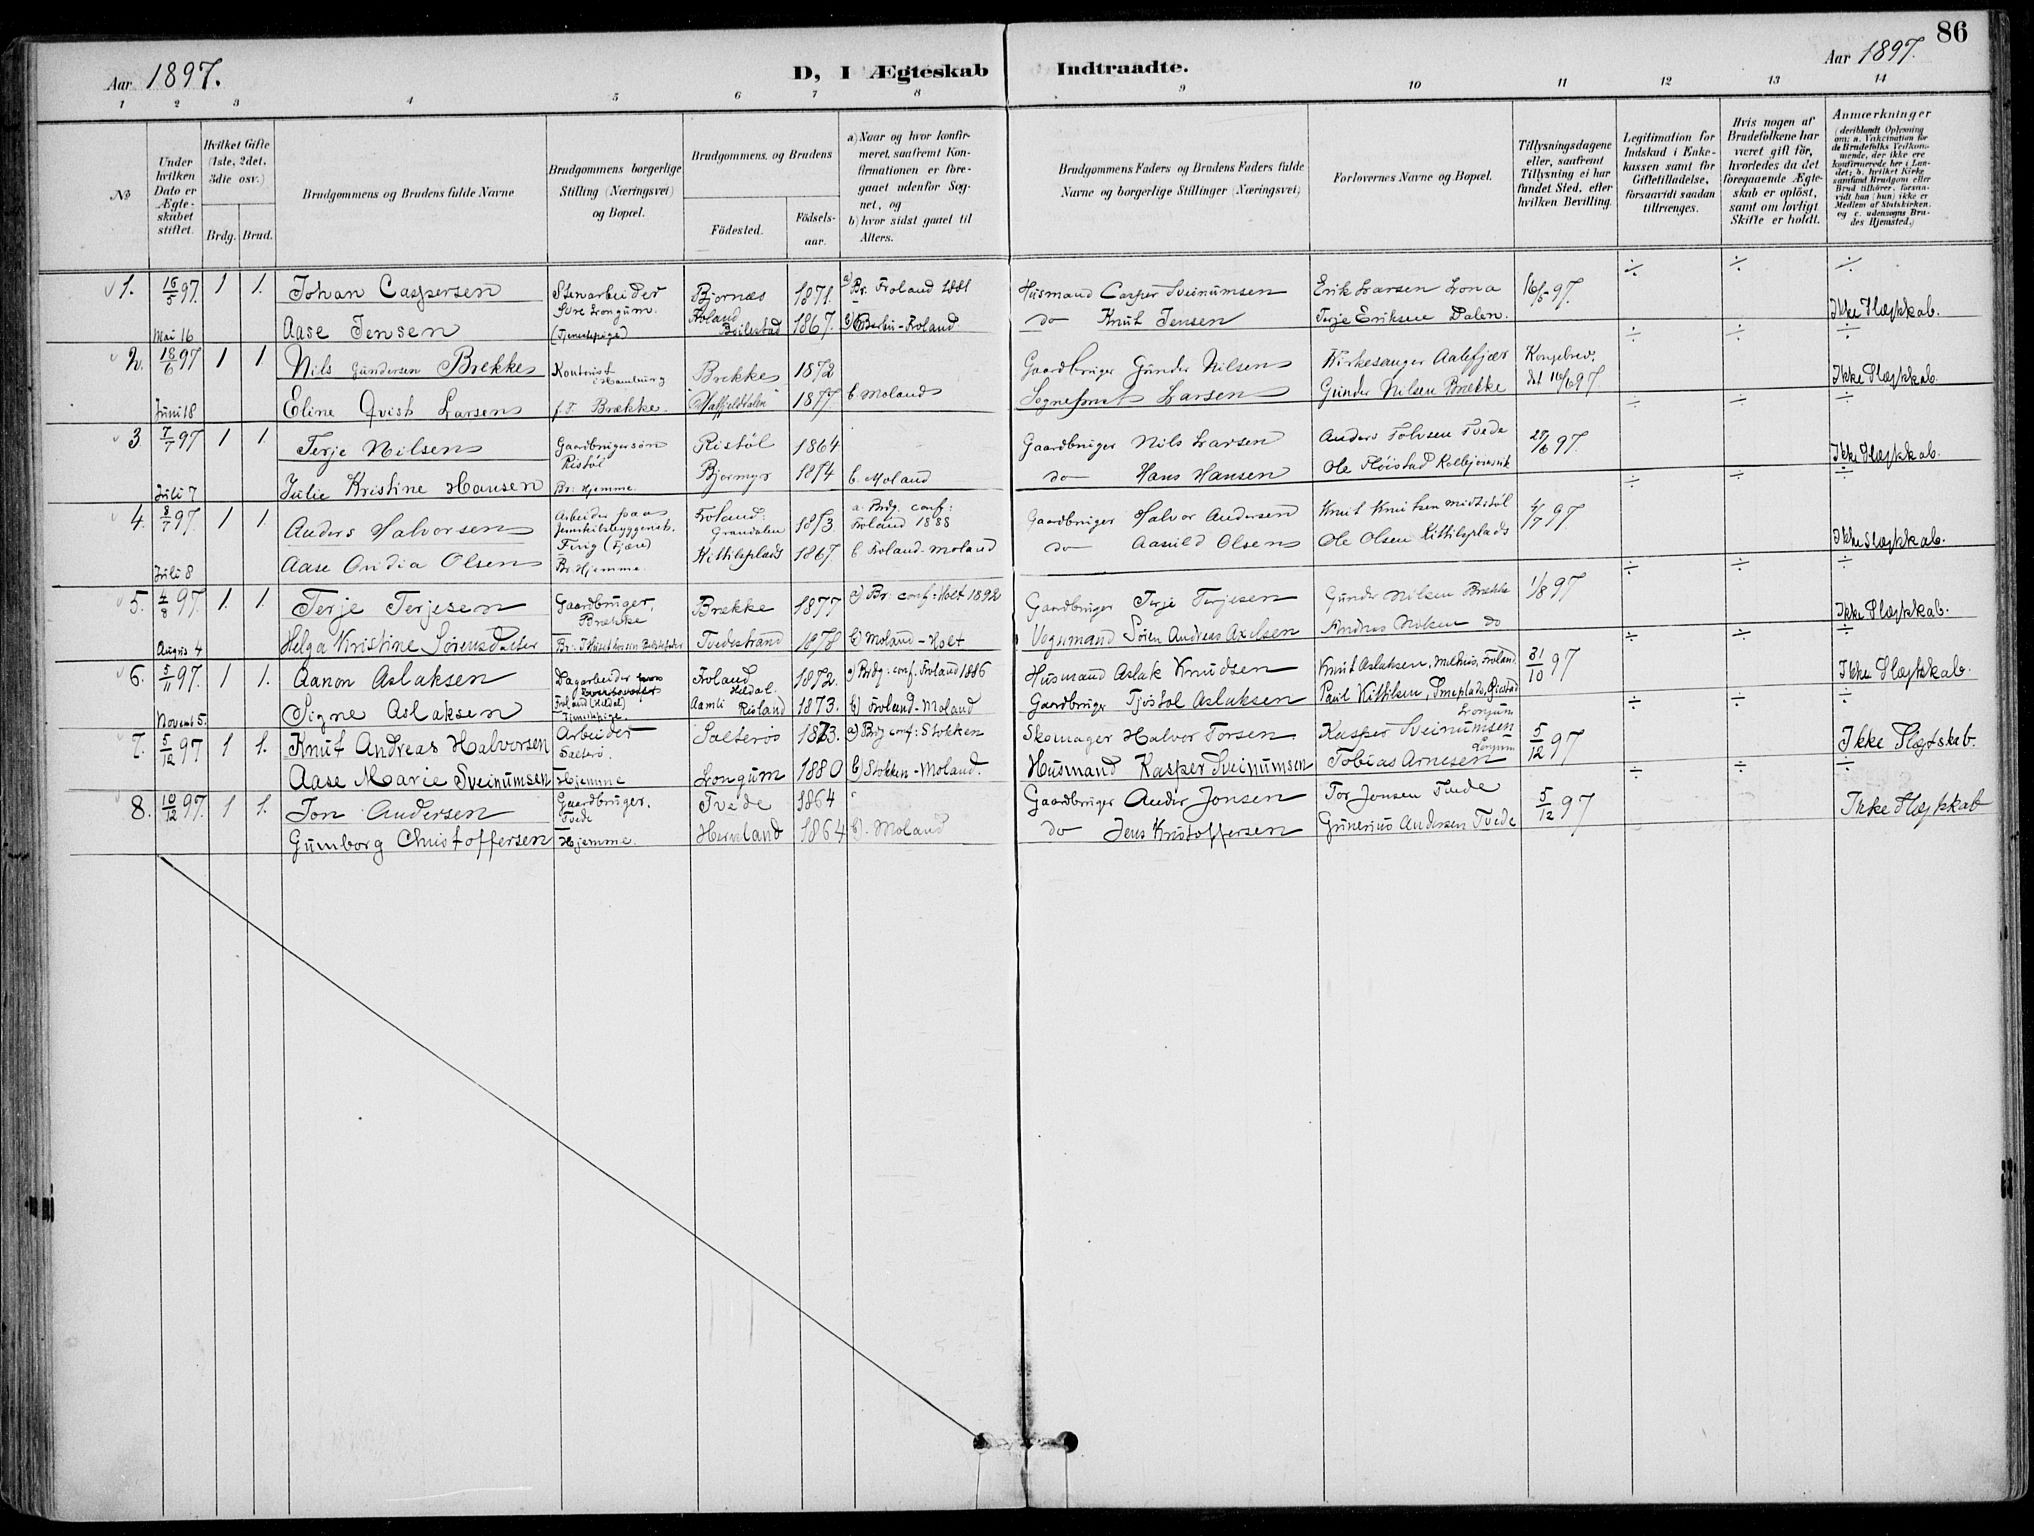 86
Aar 1897.
D, I Ægteskab Indtraadte.
Aar 1897.
1 2 3 4 5 6 7 8 9 10 11 12 13 14
No
Under hvilken Dato er Ægteskabet stiftet.
Hvilket Gifte (1ste, 2det, 3die osv.)
Brdg. Brud.
Brudgommens og Brudens fulde Navne
Brudgommens borgerlige Stilling (Næringsvei) og Bopæl.
Brudgommens og Brudens
Födested.
Födsels-aar.
a) Naar og hvor konfirmeret, saafremt Konfirmationen er foregaaet udenfor Sognet, og
b) hvor sidst gaaet til Alters.
Brudgommens Faders og Brudens Faders fulde Navne og borgerlige Stillinger (Næringsvei)
Forlovernes Navne og Bopæl.
Tillysningsdagene eller, saafremt Tillysning ei har fundet Sted, efter hvilken Bevilling.
Legitimation for Indskud i Enkekassen samt for Giftetilladelse, forsaavidt saadan tiltrænges.
Hvis nogen af Brudefolkene har været gift för, hvorledes da det foregaaende Ægteskab er oplöst, samt om lovligt Skifte er holdt.
Anmærkninger
(deriblandt Oplysning om: a. Vakcination for de Brudefolks Vedkommende, der ikke ere konfirmerede her i Landet; b. hvilket Kirkesamfund Brudgom eller Brud tilhörer, forsaavidt han (hun) ikke er Medlem af Statskirken, og c. udensogns Brudes Hjemsted.)
1. 16/5 97. 1 1. Johan Caspersen Stenarbeider Bjornæs 1871. a) Br. Froland 1881 Husmand Casper Sveinumsen Erik Larsen Lona 16/5 97. ÷ ÷ ÷
Longum.
Mai 16 Aase Jensen (Tjenestepige) Froland Beilestad 1867. Barbu-Froland do Knut Jensen Terje Eriksen Dalen. Ikke Slægtskab.
2. 18/6 97 1 1 Nils Gundersen Brekke Kontorist i Hamburg Brekke 1872 Gaardbruger Gunder Nilsen Kirkesanger Aalefjær Kongebrev. ÷ ÷ ÷
Juni 18 Eline Qvist Larsen f. T. Brække. Hatfjelddalen 1877. b. Moland Sogneprest Larsen Gunder Nilsen Brække dat 16/6 97. Ikke Slægtskab.
3. 7/7 97 1 1. Terje Nilsen Gaardbrugersøn Ristöl Ristöl 1864 Gaardbruger Nils Larsen Anders Tolvsen Tvede 97. ÷ ÷ ÷
Juli 7 Julie Kristine Hansen Br. Hjemme. Bjormyr 1874 b. Moland do Hans Hansen Ole Flöistad Ikke Slægtskab.
4. 8/7 97. 1 1. Anders Halvorsen Arbeider paa Firig (Fjære) Froland: Grandalen 1873 a. Brdg. conf: Froland 1888 Gaardbruger Halvor Andersen Knut Knutsen Midtstöl 4/7 97. ÷ ÷ ÷
Juli 8 Aase Ovidia Olsen Br. Hjemme. Kittilsplads 1867. b Froland-Moland do Aasuld Olsen Ole Olsen Kittilsplads Ikke Slægtskab.
5. 4/8 97. 1. 1. Terje Terjesen Gaardbruger, Brække Brække 1877 a) Br. conf: Holt 1892 Gaardbruger Terje Terjesen Gunder Nilsen Brække 1/8 97 ÷ ÷ ÷
Augus 4 Helga Kristine Sörensdatter Tvedestrand 1878 b) Moland-Holt Vognmand Sören Andreas Axelsen Andreas Nilsen do Ikke Slægtskab.
6. 5/11 97. 1 1. Aanon Aslaksen Dagarbeider Froland (Hildal) Froland Hildal. 1872. a) Brdg. conf. Froland 1886 Husmand Aslak Knudsen Knut Aslaksen, Froland. 31/10 97 ÷ ÷ ÷
Novemb 5. Signe Aslaksen Tjenestepige Aamli Risland 1873. b) Froland-Moland Gaardbruger Tjöstol Aslaksen Paul Kittilsen, Ikke Slægtskab.
7. 5/12 97 1 1. Knut Andreas Halvorsen Arbeider Salterö. Salterö 1873. a) Brdg conf: Stokken Skomager Halvor Torsen Kasper Sveinumsen Longum 5/12 97 ÷ ÷ ÷
Aase Marie Sveinumsen Hjemme Longum 1880 b) Stokken-Moland. Husmand Kasper Sveinumsen Tobias Arnesen Longum Ikke Slægtskab.
8. 10/12 97. 1 1. Jon Andersen Gaardbruger. Tvede Tvede 1864 Gaardbruger Ander Jonsen Tor Jonsen Tvede 5/12 97 ÷ ÷ ÷
Gumborg Christoffersen Hjemme. Herneland 1864 b). Moland do Jens Kristoffersen Gunerius Andersen Tvede Ikke Slægtskab